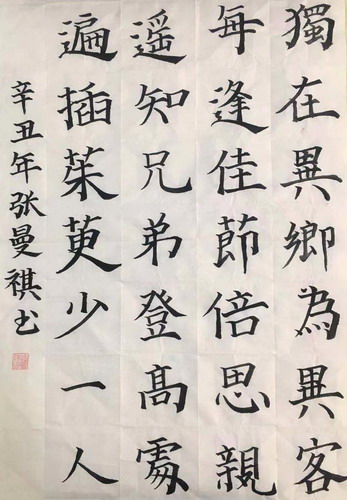 獨在異鄉為異客
每逢佳節倍思親
遥知兄弟登高處
遍插茱萸少一人
辛丑年张曼祺书